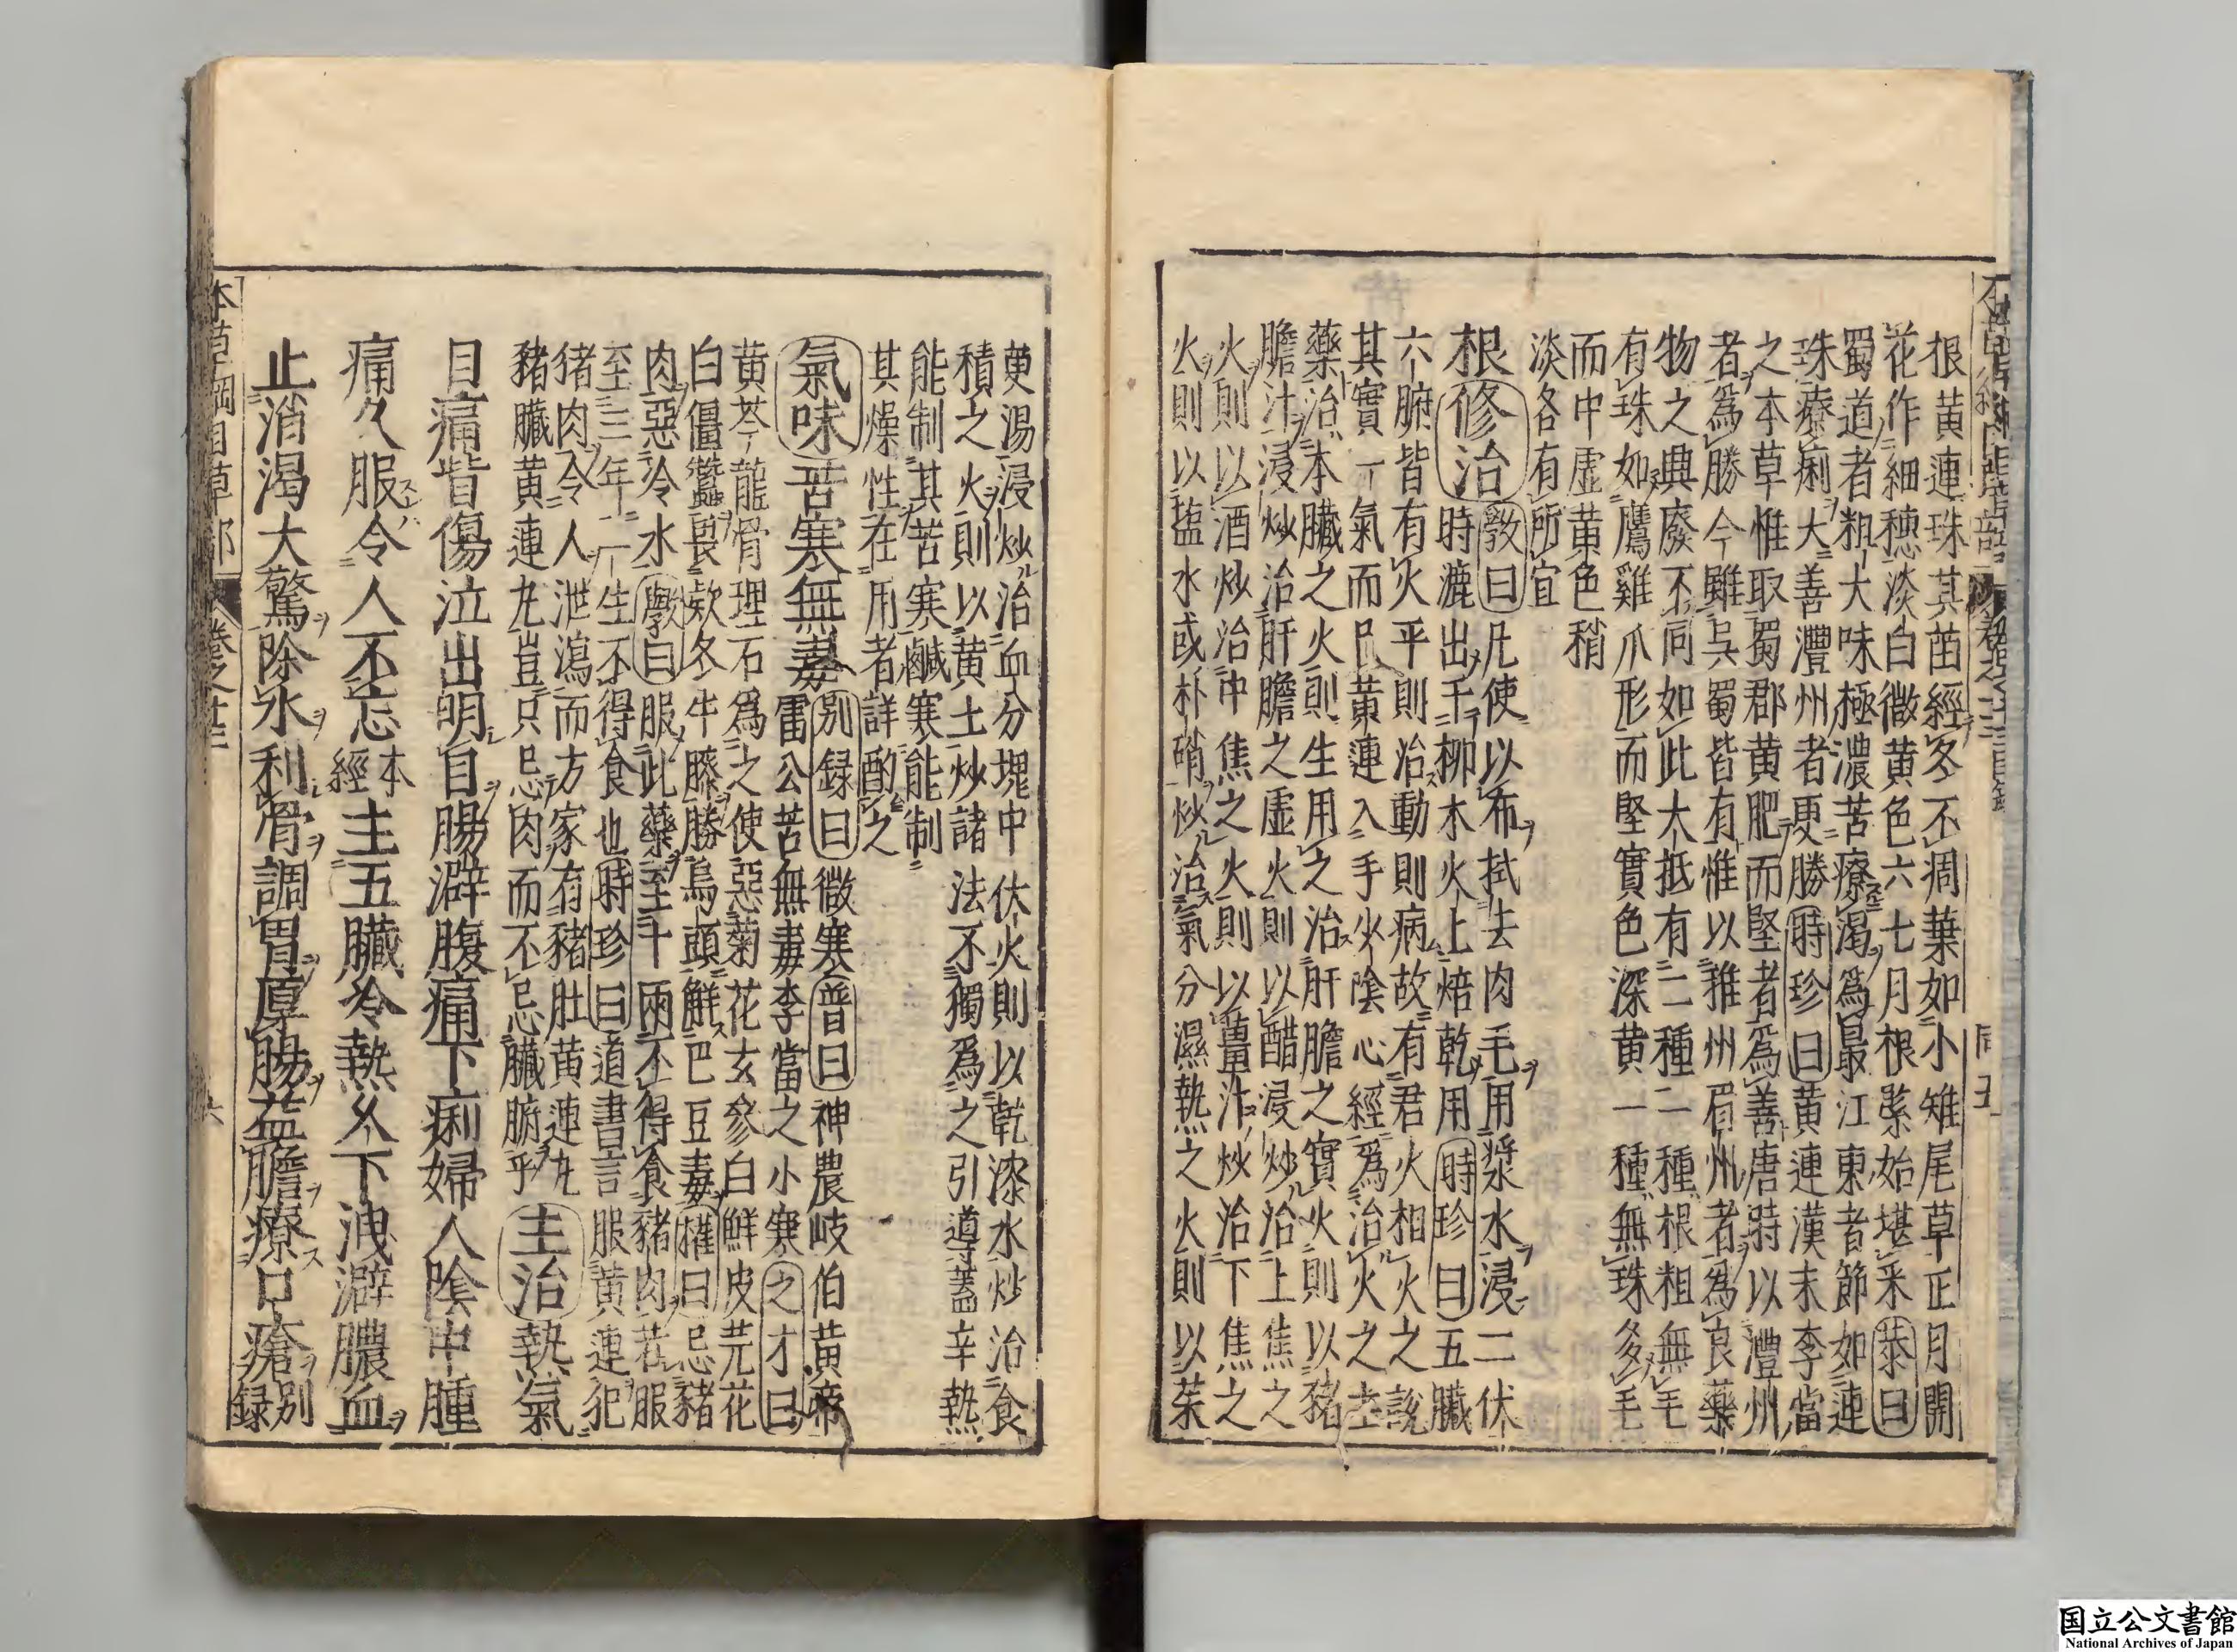 根黃連珠其苗經冬不凋葉如小雉尾草正月開
花作細穗淡白微黃色六七月根緊始堪采恭曰
蜀道者粗大味極濃苦療渴爲最江東者節如連
珠療痢大善澧州者更勝時珍曰黃連漢末李當
之本草惟取蜀郡黃肥而堅者爲善唐時以澧州
者爲勝今雖吳蜀皆有惟以雅州眉州者爲良藥
物之興廢不同如此大抵有二種一種根粗無毛
有珠如鷹雞爪形而堅實色深黃一種無珠多毛
而中虛黃色稍
淡各有所宜
根修治斅曰凡使以布拭去肉毛用漿水浸二伏
時漉出于柳木火上焙乾用時珍曰五臟
六腑皆有火平則治動則病故有君火相火之說
其實一氣而已黃連入手少陰心經爲治火之主
藥治本臟之火則生用之治肝膽之實火則以豬
膽汁浸炒治肝膽之虛火則以醋浸炒治上焦之
火則以酒炒治中焦之火則以薑汁炒治下焦之
火則以鹽水或朴硝炒治氣分濕熱之火則以茱
萸湯浸炒治血分塊中伏火則以乾漆水炒治食
積之火則以黃土炒諸法不獨爲之引導蓋辛熱
能制其苦寒鹹寒能制
其燥性在用者詳酌之
氣味苦寒無毒別録曰微寒普曰神農岐伯黃帝
雷公苦無毒李當之小寒之才曰
黃芩龍骨理石爲之使惡菊花玄參白鮮皮芫花
白僵蠶畏款冬牛膝勝烏頭解巴豆毒權曰忌豬
肉惡冷水斅曰服此藥至十兩不得食豬肉若服
至三年一生不得食也時珍曰道書言服黃連犯
猪肉令人泄瀉而方家有豬肚黃連丸
豬臟黃連丸豈只忌肉而不忌臟腑乎主治熱氣
目痛眥傷泣出明目腸澼腹痛下痢婦人陰中腫
痛久服令人不忘本經主五臟冷熱久下洩澼膿血
止消渴大驚除水利骨調胃厚腸益膽療口瘡別録
本草綱目草部
卷之十三
六